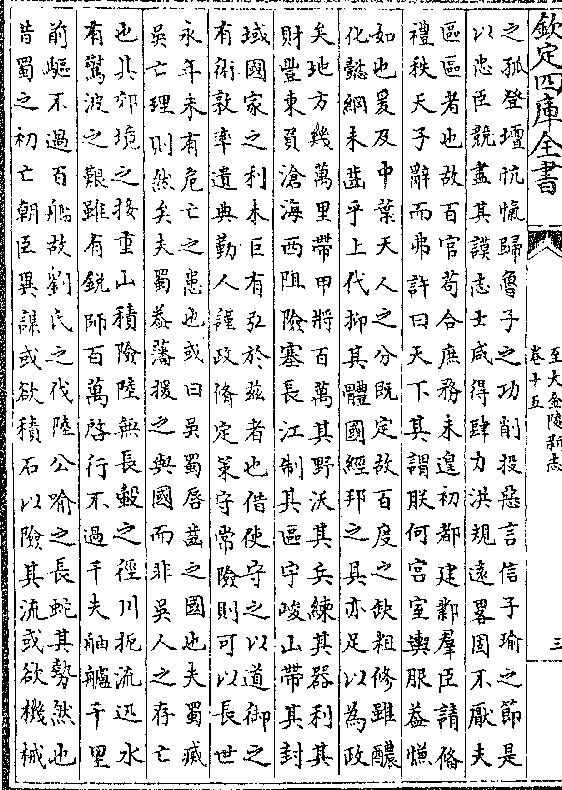 欽定四庫全書
至大金陵新志
卷十五
三
之孤登壇忼愾歸魯子之功削投惡言信子瑜之節是
以忠臣競盡其謨志士咸得肆力洪規遠畧固不厭夫
區區者也故百官苟合庶務未遑初都建鄴羣臣請脩
禮秩天子辭而弗許曰天下其謂朕何宮室輿服葢慊
如也爰及中葉天人之分既定故百度之缺粗修雖醲
化懿綱未齒乎上代抑其體國經邦之具亦足以為政
矣地方幾萬里帶甲將百萬其野沃其兵練其器利其
財豐東負滄海西阻險塞長江制其區宇峻山帶其封
域國家之利未巨有弘於兹者也借使守之以道御之
有術敦率遺典勤人謹政脩定策守常險則可以長世
永年未有危亡之患也或曰吳蜀唇齒之國也夫蜀滅
吳亡理則然矣夫蜀葢藩援之與國而非吳人之存亡
也其郊境之接重山積險陸無長轂之徑川扼流迅水
有驚波之艱雖有銳師百萬啓行不過千夫舳艫千里
前驅不過百艦故劉氏之伐陸公喻之長蛇其勢然也
昔蜀之初亡朝臣異謀或欲積石以險其流或欲機械